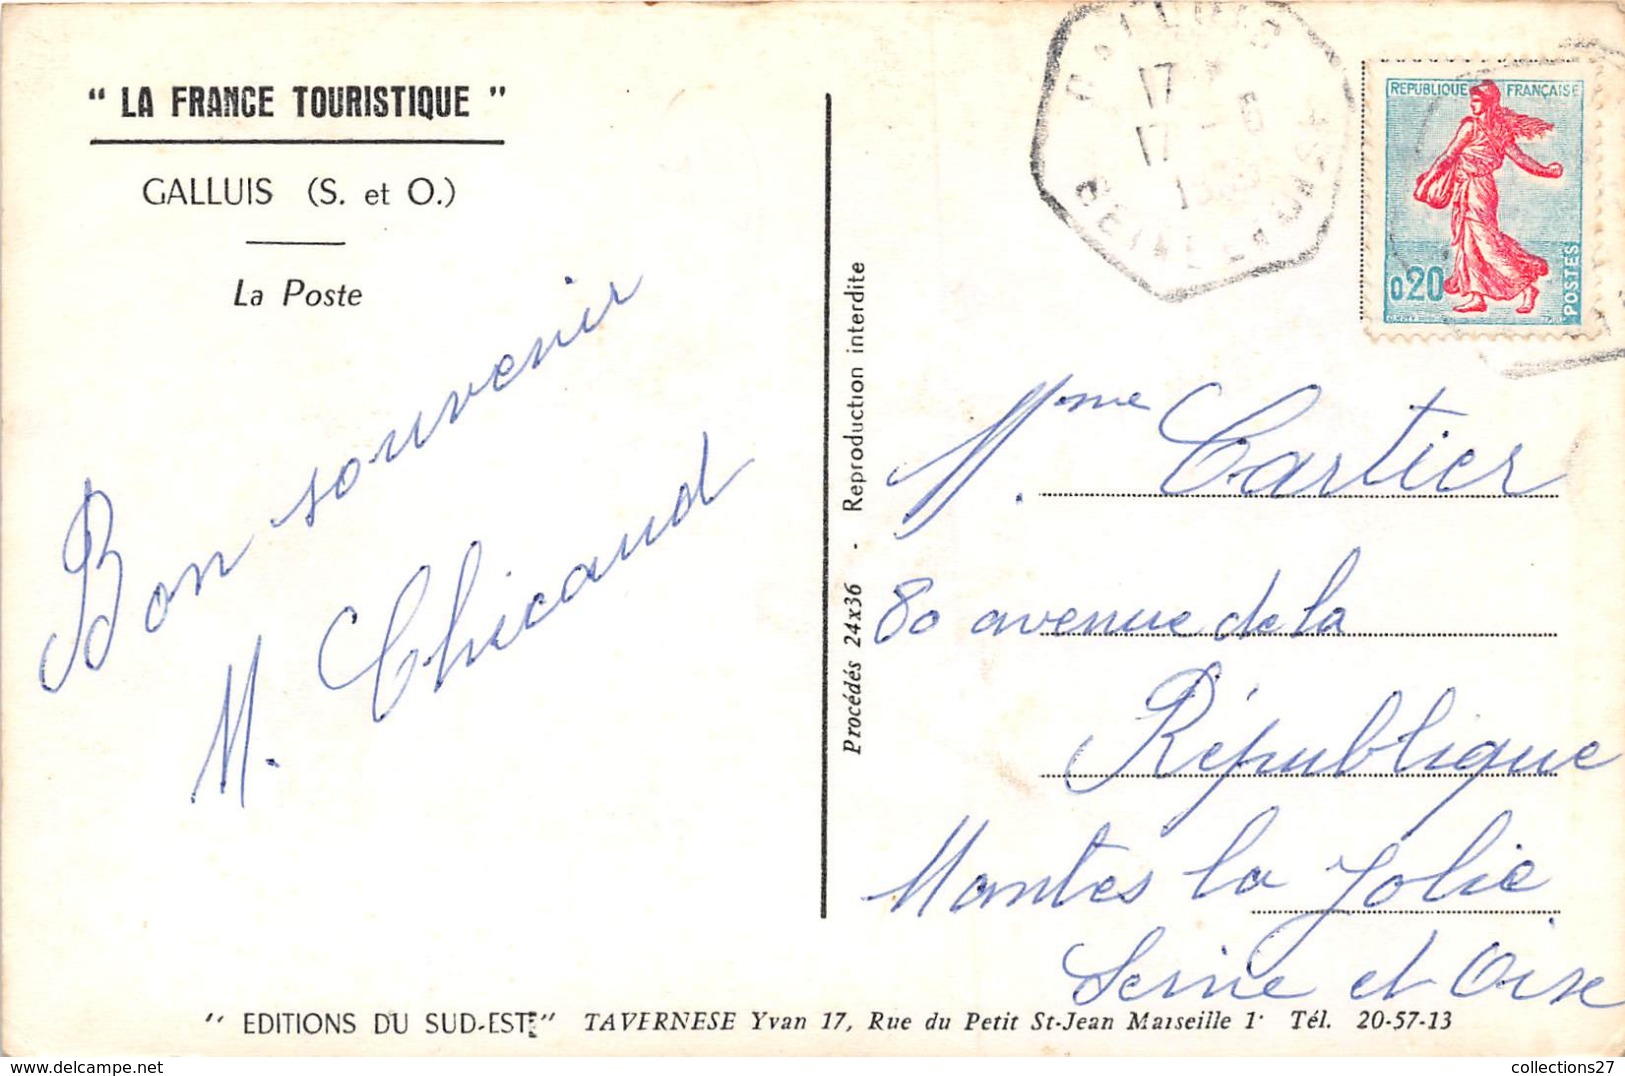 " LA FRANCE TOURISTIQUE "
GALLUIS (S. et O.)
La Poste
Bon souvenir
M. Chicaud
Procédés 24x36 - Reproduction interdite
17
17 - 6
REPUBLIQUE FRANÇAISE
0,20
POSTES
Mme Cartier
80 avenue de la
République
Mantes la Jolie
Seine et Oise
" EDITIONS DU SUD-EST " TAVERNESE Yvan 17, Rue du Petit St-Jean Marseille 1r Tél. 20-57-13
collections27